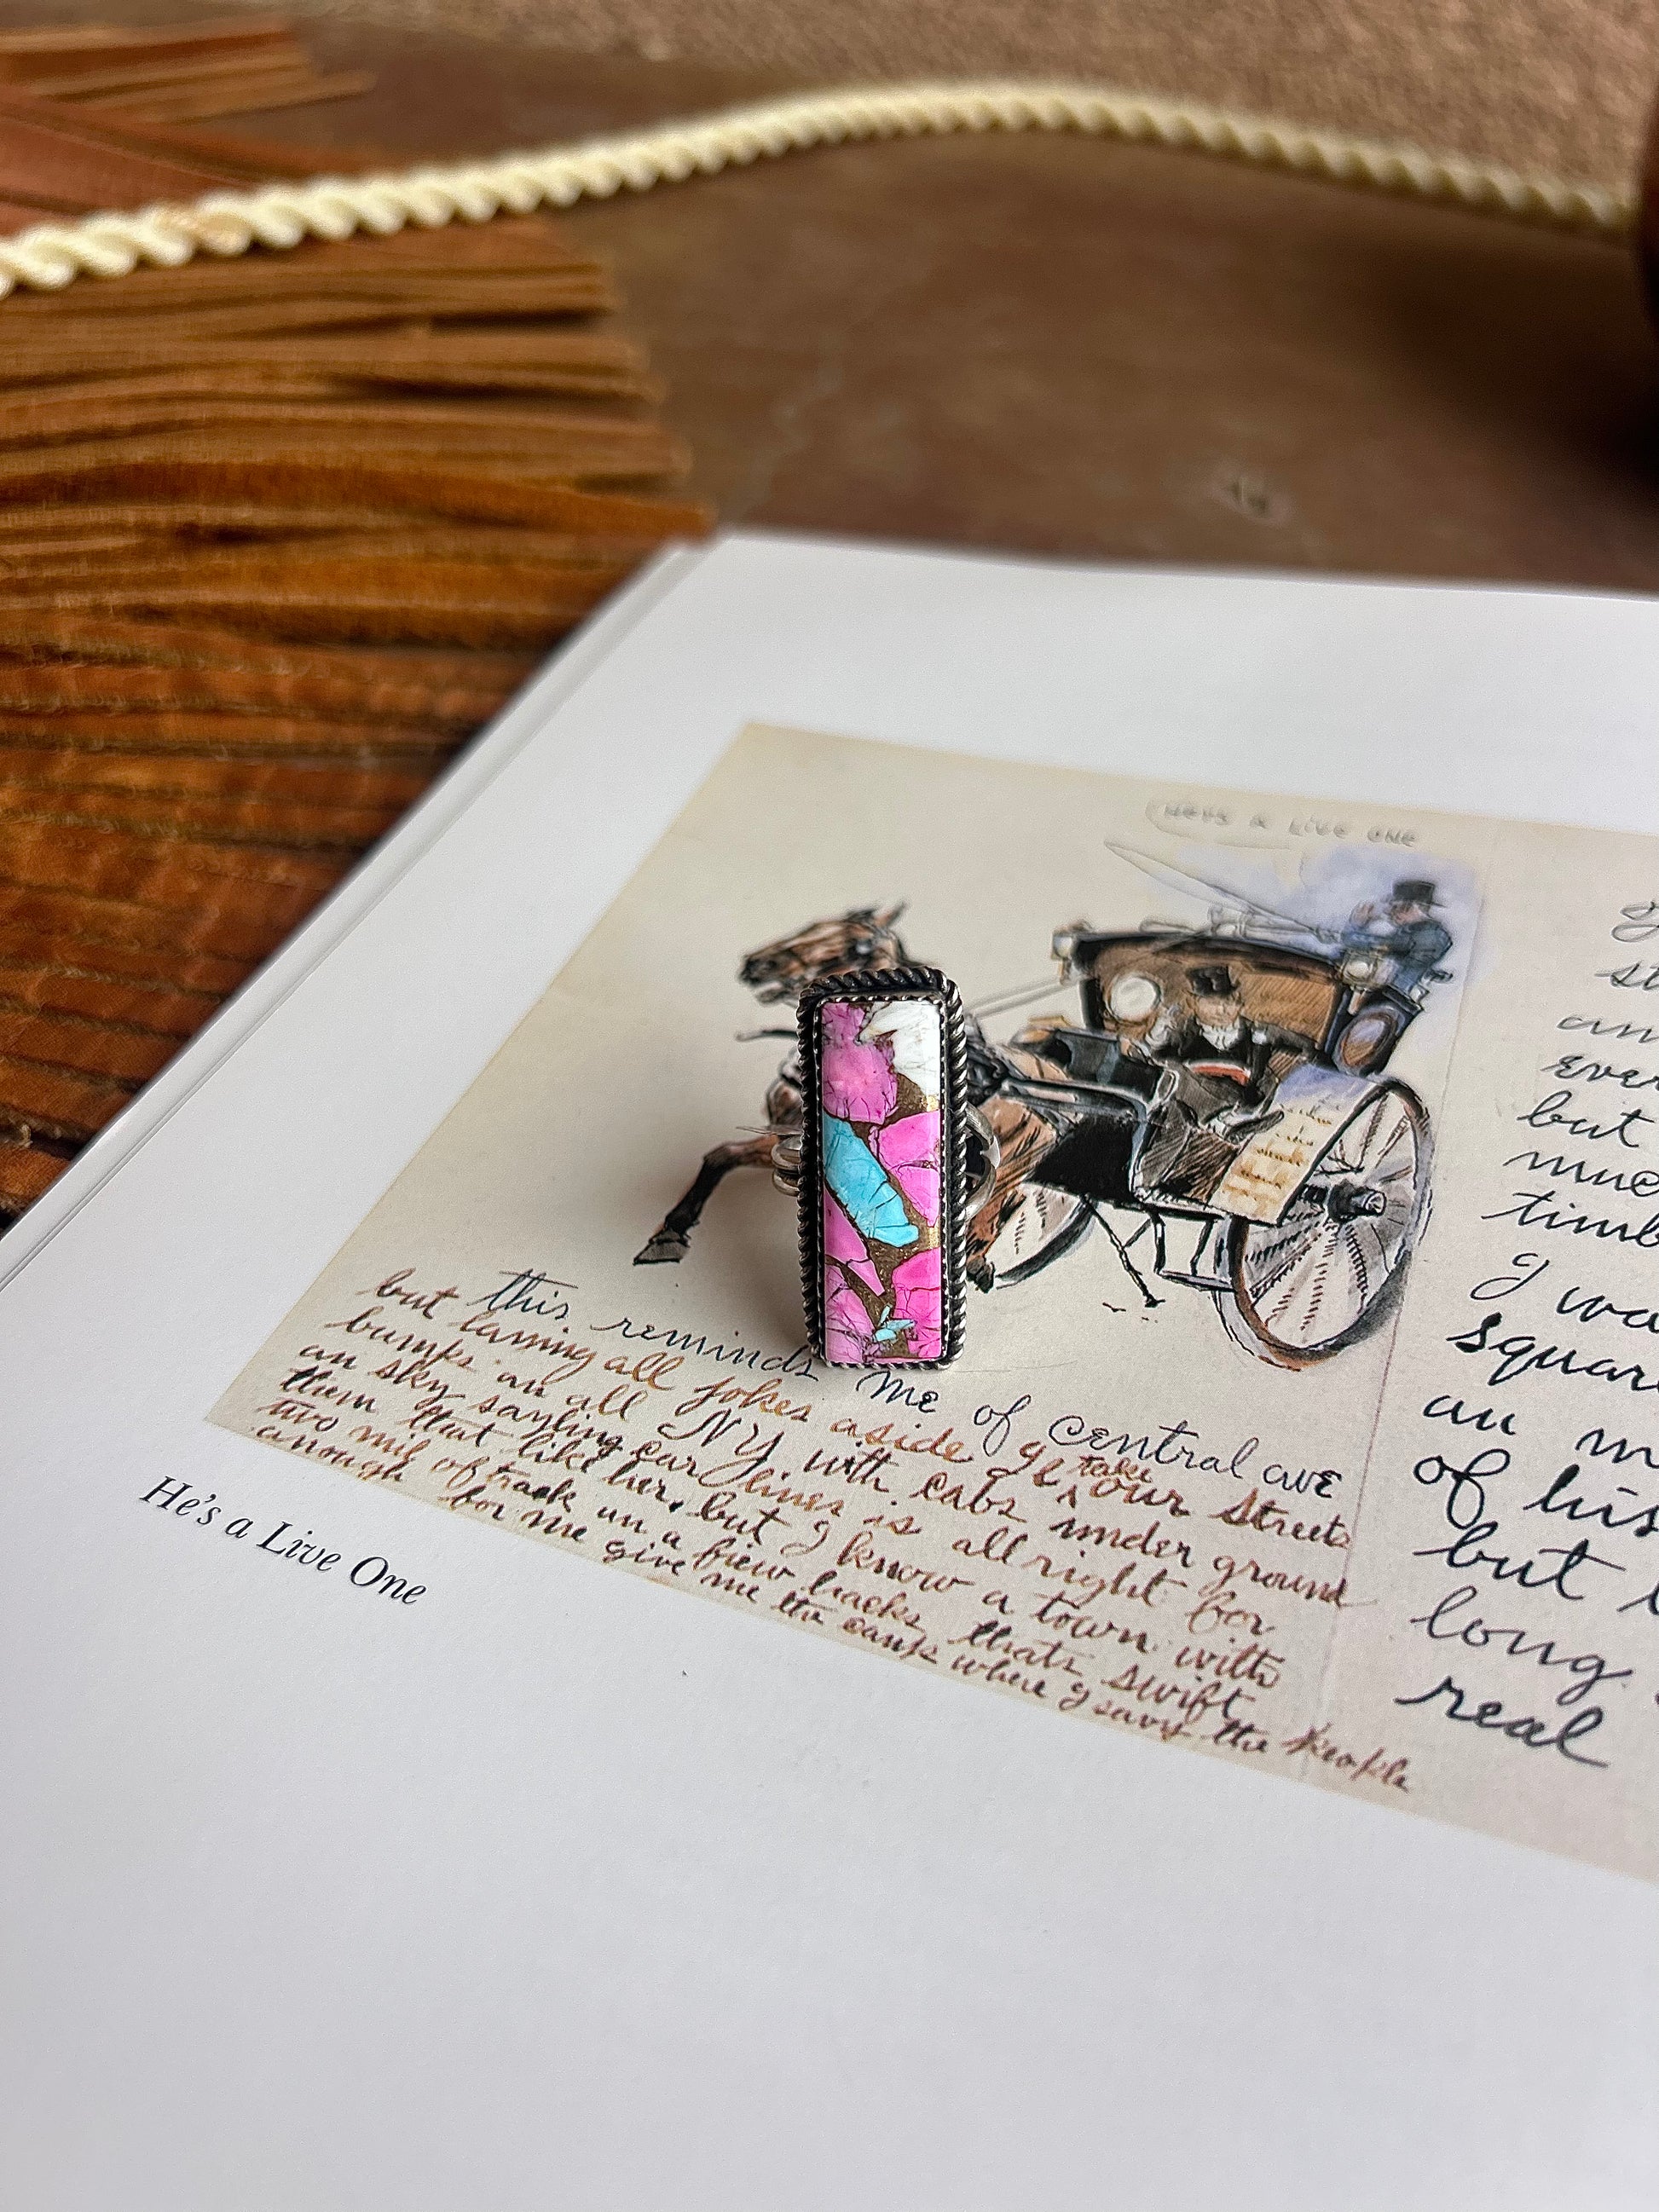 HERS A LIVE ONE
this reminds me of central ave
but laming all jokes aside g l take our streets
bumps an all NY with cabs under ground
an sky sayling car lines is all right for
them that like her, but g know a town with
two mil of track un a fiew hacks thats swift
anough for me give me the camp where g savy the people
He's a Live One
g
st
an
ever
but
muc
timb
g wa
square
an m
of his
but
long
real